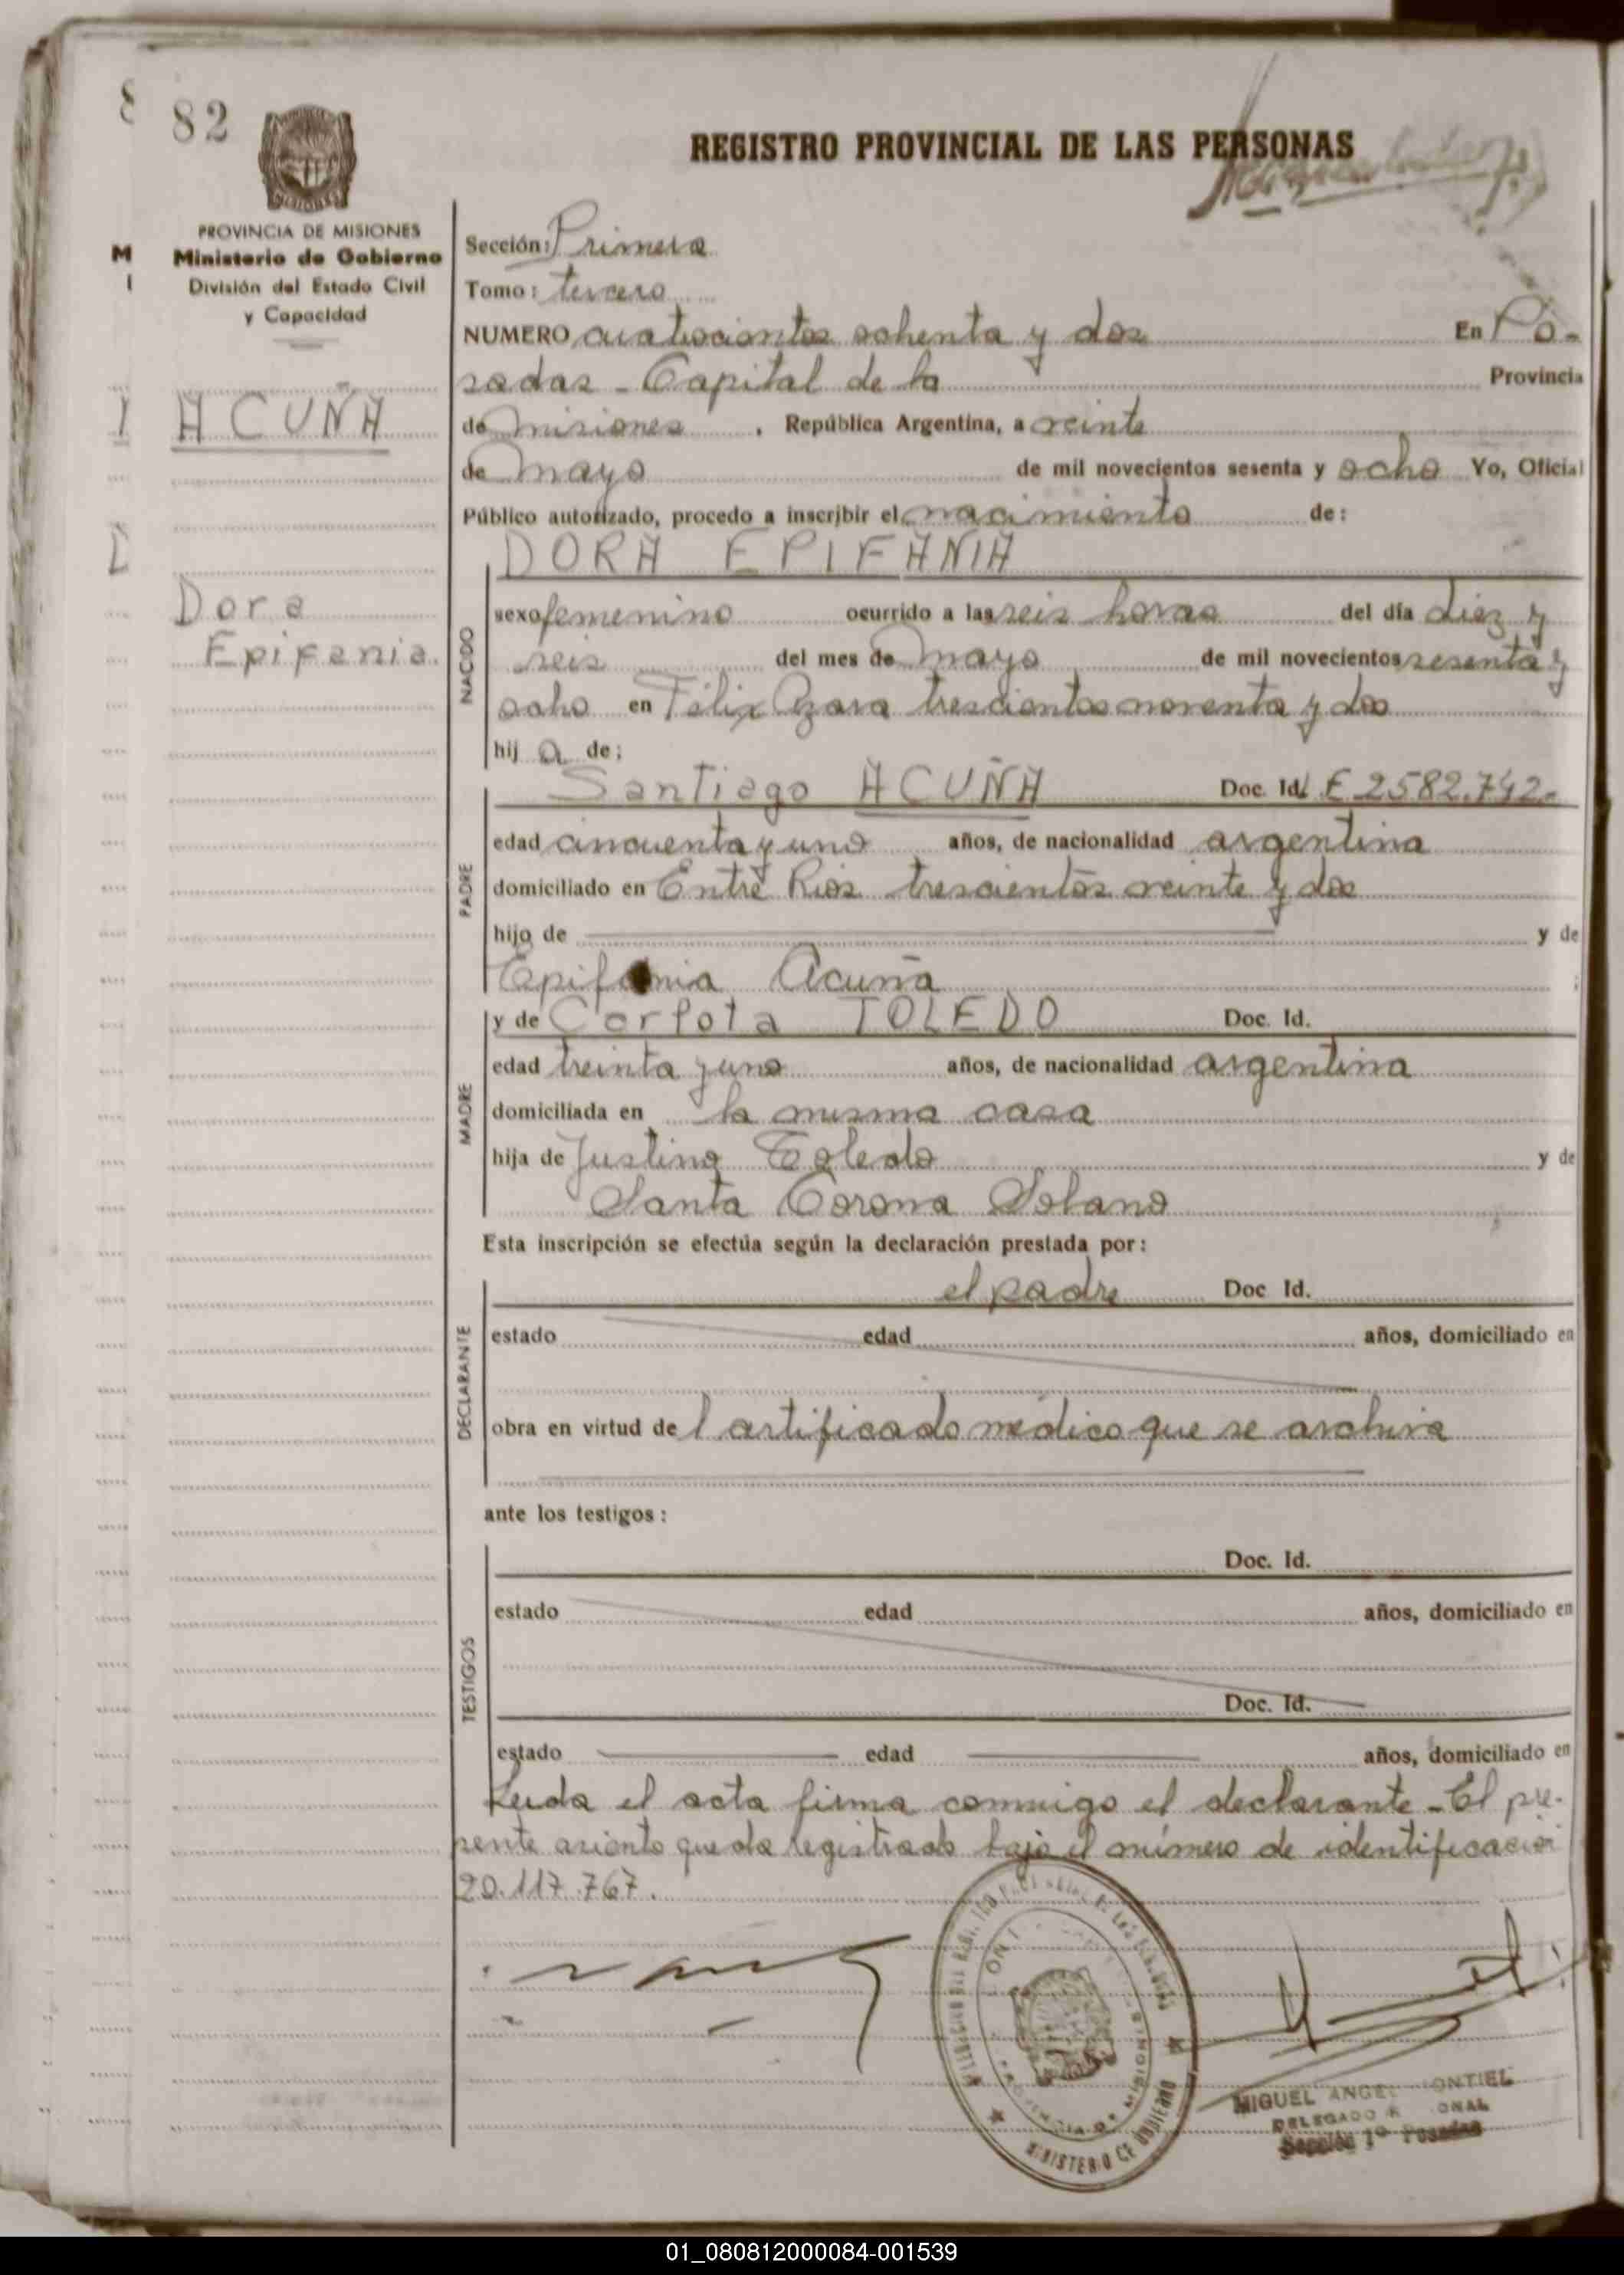 82
REGISTRO PROVINCIAL DE LAS PERSONAS
PROVINCIA DE MISIONES
Ministerio de Gobierno
División del Estado Civil
y Capacidad
ACUÑA
Dora
Epifania.
Sección: Primera
Tomo: tercero
NUMERO cuatrocientos ochenta y dos En Po-
sadas - Capital de la Provincia
de misiones, República Argentina, a veinte
de mayo de mil novecientos sesenta y ocho Yo, Oficial
Público autorizado, procedo a inscribir el nacimiento de:
NACIDO
DORA EPIFANIA
sexo femenino ocurrido a las seis horas del día diez y
seis del mes de mayo de mil novecientos sesenta y
ocho en Félix Azara trescientos noventa y dos
hij a de;
PADRE
Santiago ACUÑA Doc. Id. E 2582.742.-
edad cincuenta y uno años, de nacionalidad argentina
domiciliado en Entre Rios trescientos veinte y dos
hijo de y de
Epifania Acuña ;
MADRE
y de Carlota TOLEDO Doc. Id.
edad treinta y uno años, de nacionalidad argentina
domiciliada en la misma casa
hija de Justino Toledo y de
Santa Corona Solano
Esta inscripción se efectúa según la declaración prestada por:
DECLARANTE
el padre Doc Id.
estado edad años, domiciliado en
obra en virtud de l certificado médico que se archiva
ante los testigos:
TESTIGOS
Doc. Id.
estado edad años, domiciliado en
Doc. Id.
estado edad años, domiciliado en
Leida el acta firma conmigo el declarante - El pre-
sente asiento queda registrado bajo el número de identificación
20.117.767.
MINISTERIO DE GOBIERNO
MIGUEL ANGEL MONTIEL
DELEGADO
Sección 1ª Posadas
01_080812000084-001539